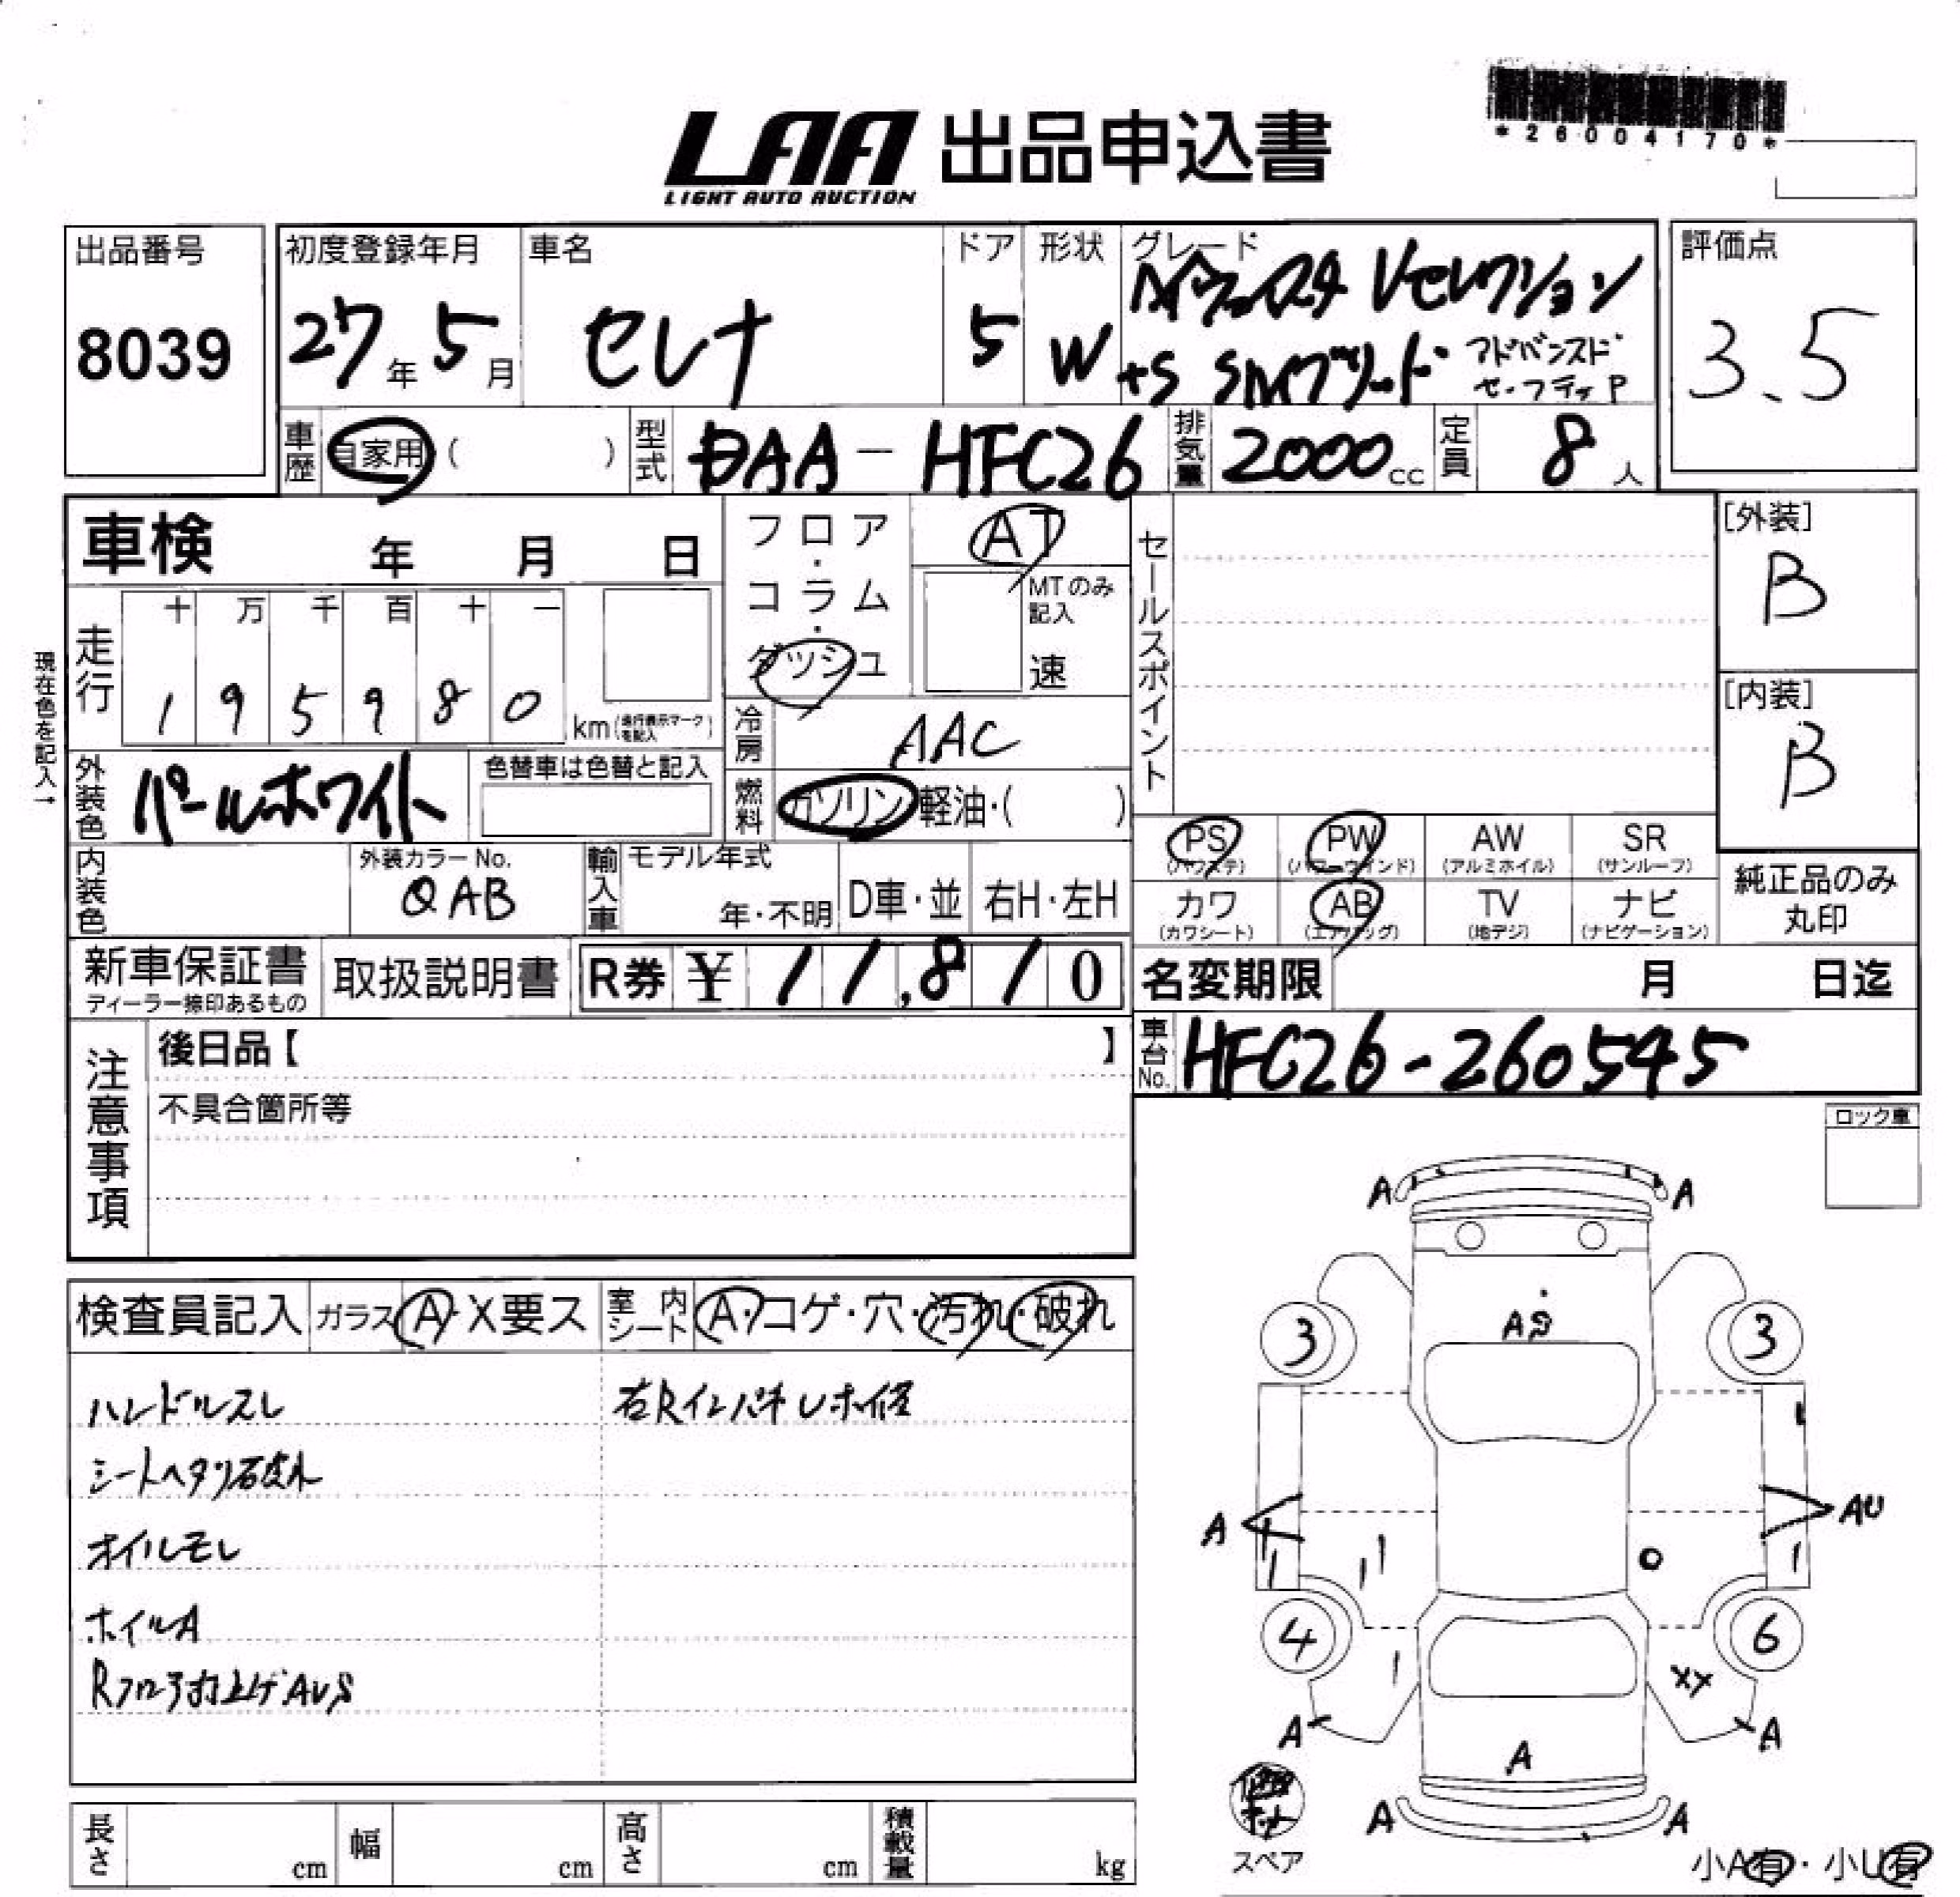 *26004170*
LAA 出品申込書
LIGHT AUTO AUCTION
出品番号
8039
初度登録年月
27年5月
車名
セレナ
ドア
5
形状
W
グレード
ハイウェイスター Vセレクション
+S Sハイブリッド アドバンスド
セーフティP
評価点
3.5
車歴 自家用 ( )
型式 DAA-HFC26
排気量 2000cc
定員 8人
車検 年 月 日
フロア・コラム・ダッシュ
AT
MTのみ記入
速
セールスポイント
[外装]
B
現在色を記入→
走行
十 万 千 百 十 一
1 9 5 9 8 0 km (走行表示マークを記入)
冷房 AAC
[内装]
B
外装色 パールホワイト
色替車は色替と記入
燃料 ガソリン 軽油・( )
内装色
外装カラーNo.
QAB
輸入車
モデル年式
年・不明
D車・並
右H・左H
PS (パワステ)
PW (パワーウインド)
AW (アルミホイル)
SR (サンルーフ)
カワ (カワシート)
AB (エアバッグ)
TV (地デジ)
ナビ (ナビゲーション)
純正品のみ
丸印
新車保証書
ディーラー捺印あるもの
取扱説明書
R券 ¥ 11,810
名変期限 月 日迄
注意事項
後日品【 】
不具合箇所等
車台No. HFC26-260545
ロック車
検査員記入
ガラス A・X要ス
室内シート A・コゲ・穴・汚れ・破れ
ハンドルスレ
右Rインパネレホイ径
シートヘタリ破れ
オイルモレ
ホイルA
Rフロア突上げAUS
A A
AS
3 3
A AU
4 6
XX
A A
A
A A
スペア
小A有・小U有
長さ cm
幅 cm
高さ cm
積載量 kg